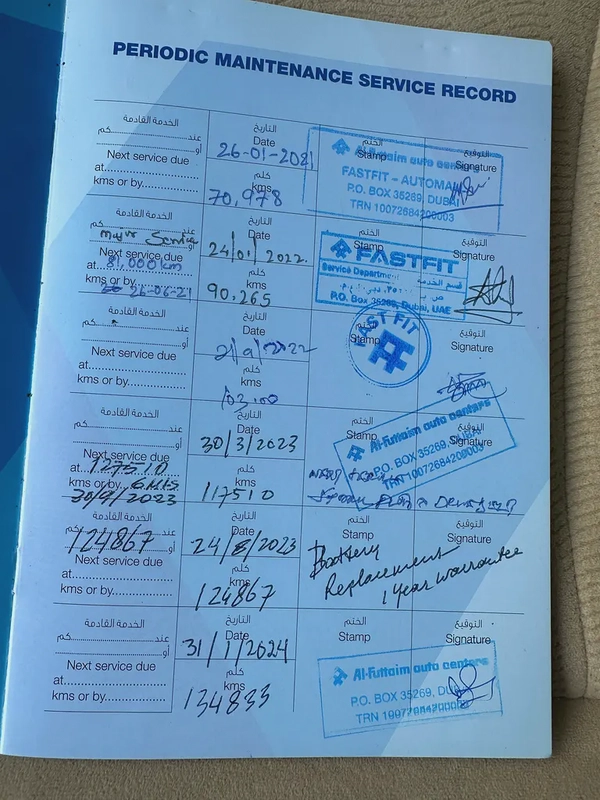 PERIODIC MAINTENANCE SERVICE RECORD
الخدمة القادمة
عند كم
أو
Next service due
at
kms or by
التاريخ
Date
26-01-2021
كلم
kms
70,978
الختم
Stamp
التوقيع
Signature
Al-Futtaim auto centers
FASTFIT - AUTOMALL
P.O. BOX 35269, DUBAI
TRN 10072684200003
الخدمة القادمة
major Service
Next service due
at 81,000 km
kms or by
26-06-21
التاريخ
Date
24/01/2022
كلم
kms
90,265
Stamp
التوقيع
FASTFIT
Service Department قسم الخدمة
P.O. Box 35269, Dubai, UAE
الخدمة القادمة
عند كم
أو
Next service due
at
kms or by
التاريخ
Date
21/9/2022
كلم
kms
FAST FIT
Stamp
التوقيع
Signature
الخدمة القادمة
عند كم
أو
Next service due
at 127510
kms or by 6 Mts
30/9/2023
التاريخ
Date
30/3/2023
كلم
kms
117510
الختم
Stamp
التوقيع
Signature
Al-Futtaim auto centers
P.O. BOX 35269 DUBAI
TRN 10072684200003
الخدمة القادمة
عند كم
أو
124867
Next service due
at
kms or by
التاريخ
Date
24/8/2023
كلم
kms
124867
الختم
Stamp
التوقيع
Signature
Battery
Replacement
1 year warrantee
الخدمة القادمة
عند كم
أو
Next service due
at
kms or by
التاريخ
Date
31/1/2024
كلم
kms
134833
الختم
Stamp
التوقيع
Signature
Al-Futtaim auto centers
P.O. BOX 35269, DUBAI